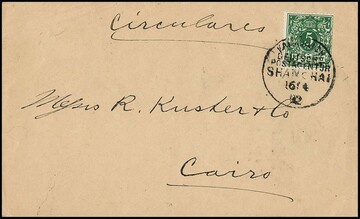 Circulares
5
KAISERL.
DEUTSCHE
POSTAGENTUR
SHANGHAI
16/4
92
Messrs R. Kuster & Co
Cairo